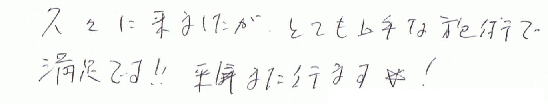 久々に来ましたが、とても上手な施術で
満足です!! また行きます☆!